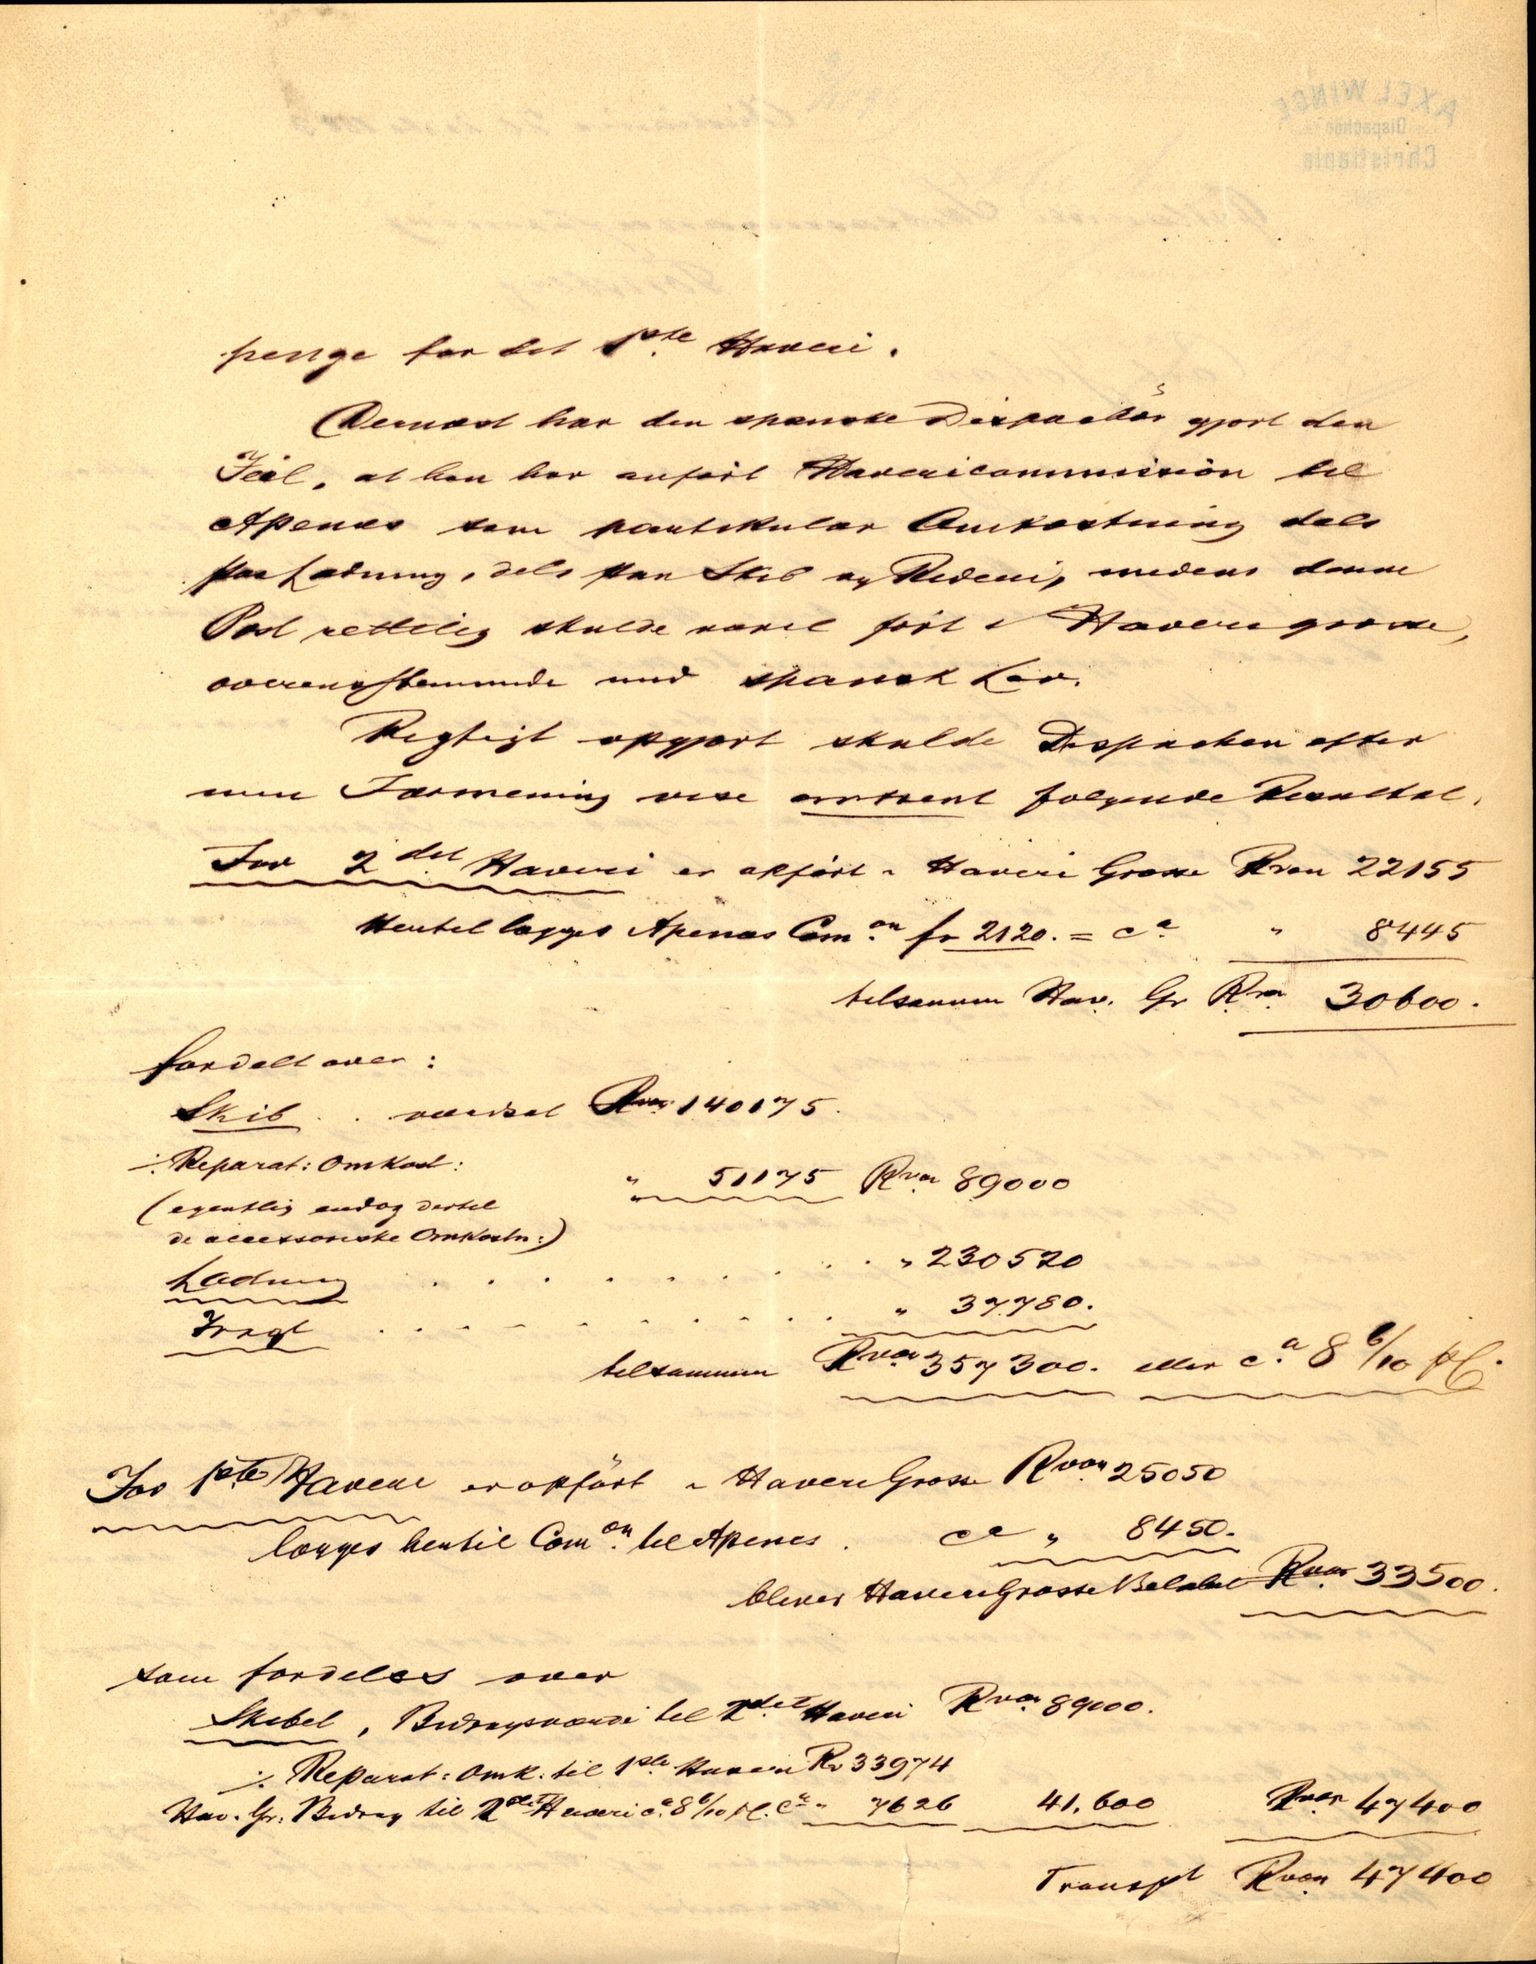 penge for det 1ste Haveri.
Dernæst har den spanske Dispachör gjort den
Feil, at han har anført Havericommission til
Apenes som partikulær Omkostning dels
paa Ladning, dels paa Skib og Rederi, medens denne
Post rettelig skulde været ført i Haveri grosse,
overensstemmende med spansk Lov.
Rigtigt opgjort skulde Dispachen efter
min Formening vise omtrent følgende Resultat.
For 2det Haveri er opført i Haveri Grosse Rvon 22155
Hertil lægges Apenes Comon fr 2120. = ca " 8445
tilsammen Hav. Gr Rvn 30600.
fordelt over:
Skib . . værdsat Rvon 140175.
÷ Reparat: Omkost: " 51175 Rvon 89000
(egentlig endog dertil
de accessoriske Omkostn:)
Ladning . . . . . . . . " 230520
Fragt . . . . . . . . " 37780.
tilsammen Rvon 357300. eller ca 8 6/10 pC.
For 1ste Haveri er opført i Haveri Grosse Rvon 25050
lægges hertil Comon til Apenes . ca " 8450.
bliver Haveri Grosse Beløbet Rvon 33500.
som fordeles over
Skibet, Bidragsværdi til 2det Haveri Rvon 89000.
÷ Reparat: Omk. til 1ste Haveri Rv 33974
Hav. Gr. Bidrag til 2det Haveri ca 8 6/10 pC. ca " 7626 41.600 Rvon 47400
Transpt Rvon 47400